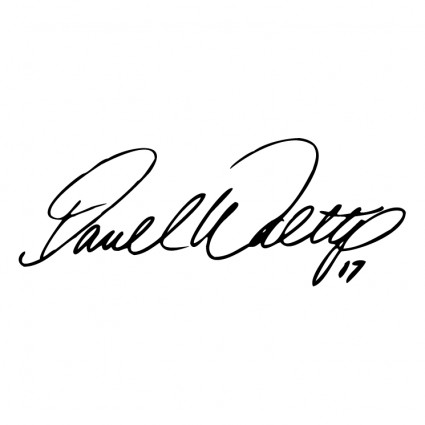 Darrell Waltrip 17